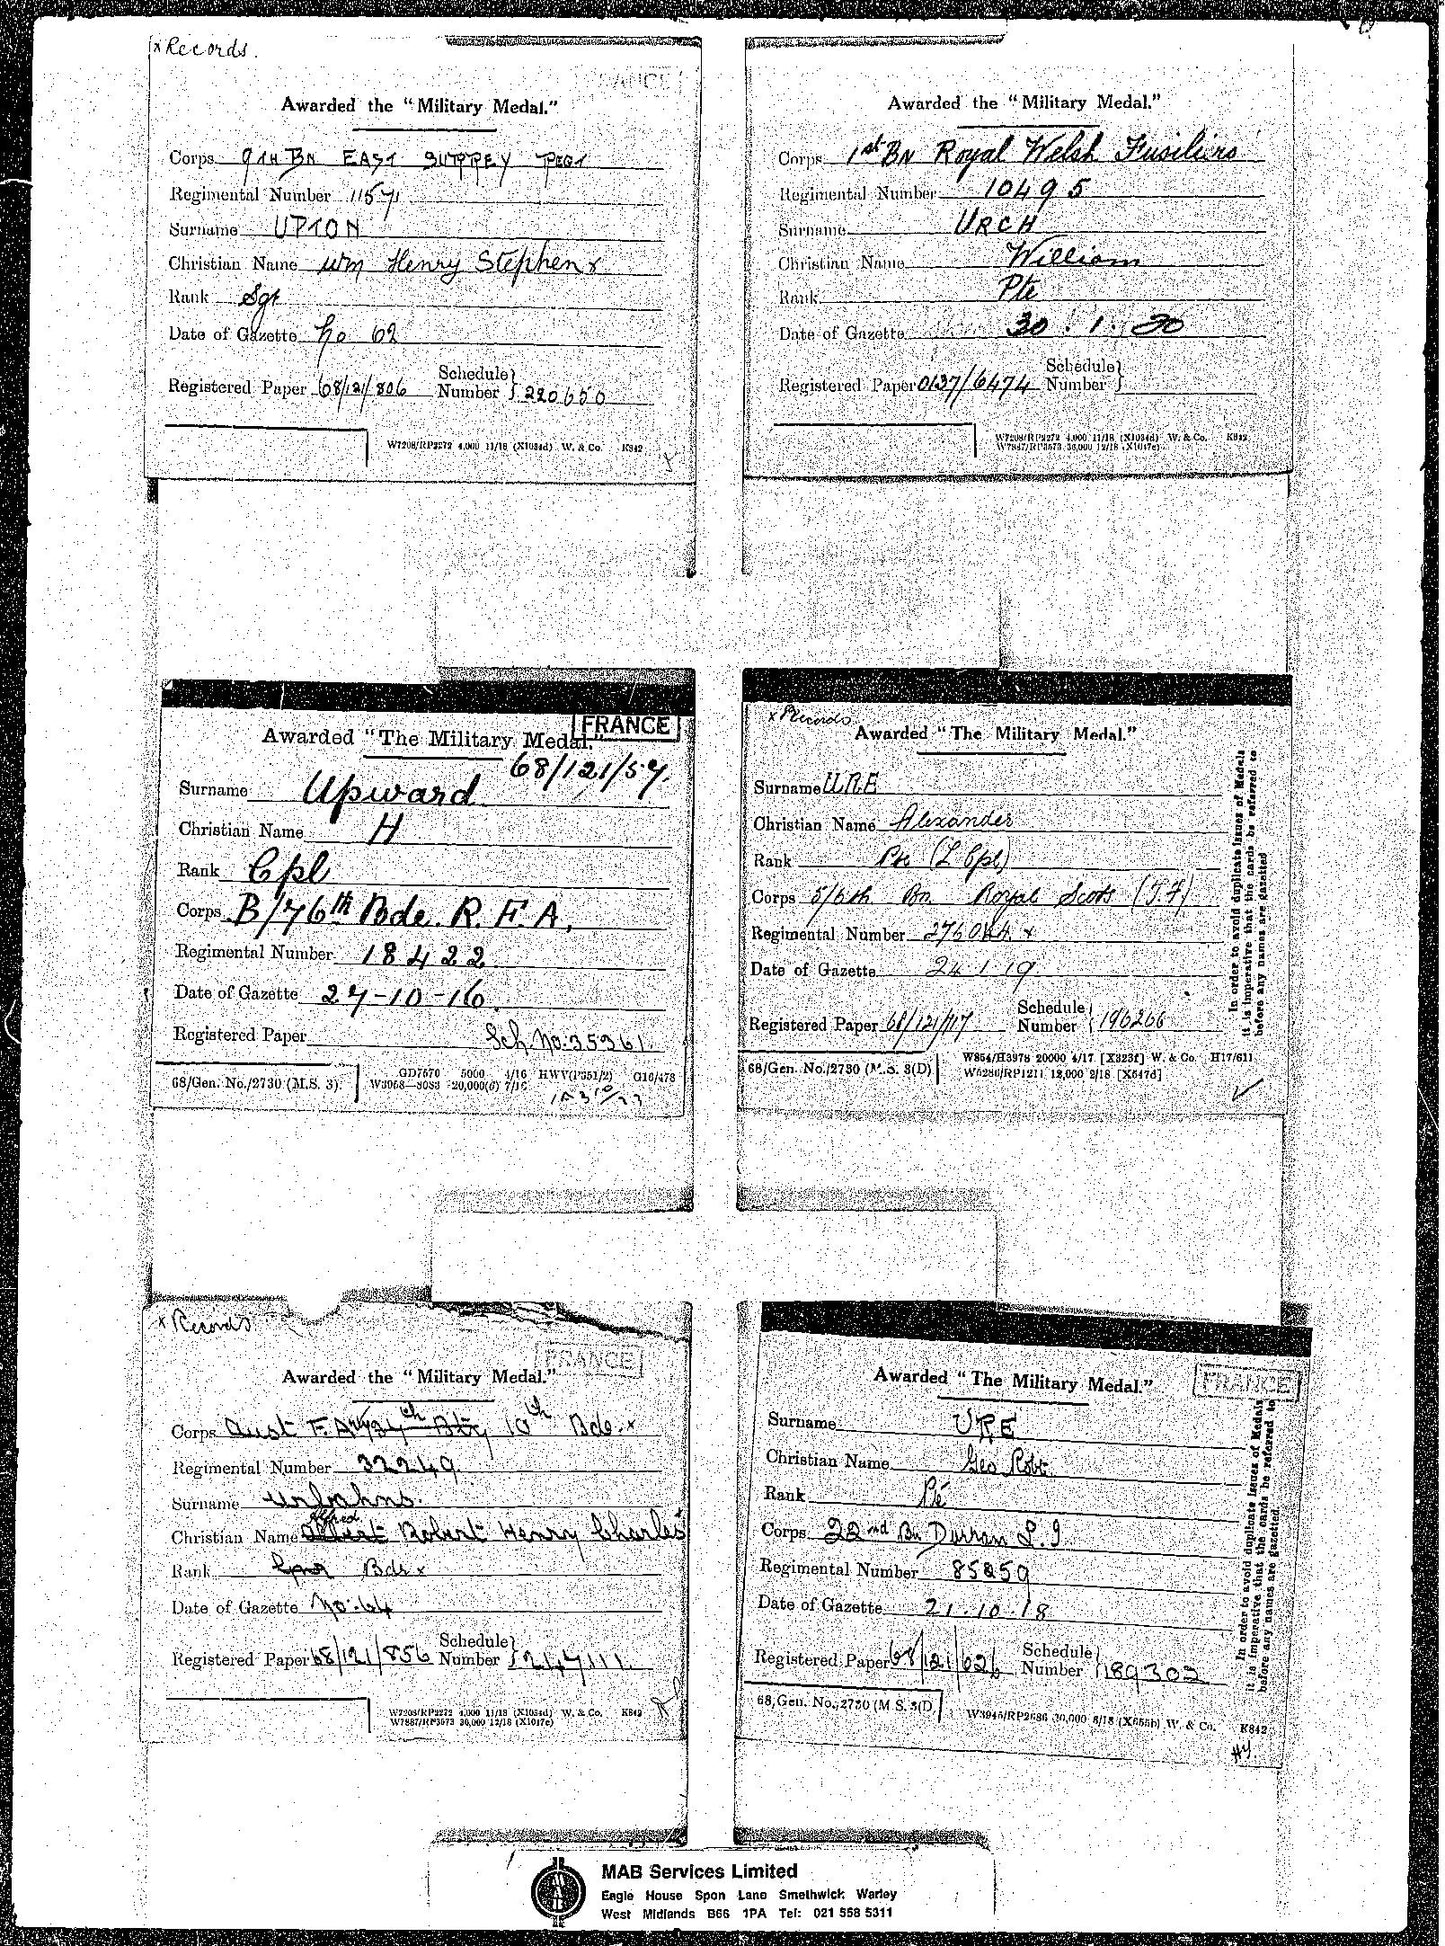 x Records.
FRANCE
Awarded the "Military Medal."
Corps 9TH BN EAST SURREY REGT
Regimental Number 11571
Surname UPTON
Christian Name Wm Henry Stephen x
Rank Sgt
Date of Gazette No 62
Registered Paper 68/121/806 Schedule Number } 220650
W7208/RP2272 4,000 11/18 (X1034d) W. & Co. K842
Awarded the "Military Medal."
Corps 1st Bn Royal Welsh Fusiliers
Regimental Number 10495
Surname URCH
Christian Name William
Rank Pte
Date of Gazette 30.1.20
Registered Paper 0137/6474 Schedule Number }
W7208/RP2272 4,000 11/18 (X1034d) W. & Co. K842
W7887/RP3573 30,000 12/18 (X1017e)
FRANCE
Awarded "The Military Medal."
68/121/57.
Surname Upward
Christian Name H
Rank Cpl
Corps B/76th Bde. R.F.A,
Regimental Number 18422
Date of Gazette 27-10-16
Registered Paper Sch. No: 35361.
68/Gen. No./2730 (M.S. 3)
GD7570 5000 4/16 HWV(P351/2) G16/478
W3068—8083 20,000(6) 7/16
x Records
Awarded "The Military Medal."
Surname URE
Christian Name Alexander
Rank Pte (L Cpl)
Corps 5/6th Bn Royal Scots (T.F)
Regimental Number 276044 x
Date of Gazette 24.1.19
Registered Paper 68/121/717 Schedule Number { 196266
68/Gen. No./2730 (M.S. 3(D)
W854/H3978 20000 4/17 [X323f] W. & Co. H17/611
W5280/RP1211 12,000 2/18 [X647d]
In order to avoid duplicate Issues of Medals
it is imperative that the cards be referred to
before any names are gazetted
x Records
FRANCE
Awarded the "Military Medal."
Corps Aust F. Arty 37th Bty 10th Bde. x
Regimental Number 32249
Surname Urbahns.
Alfred
Christian Name Albert Robert Henry Charles
Rank Gnr Bdr x
Date of Gazette No. 64
Registered Paper 68/121/856 Schedule Number } 247111
W7208/RP2272 4,000 11/18 (X1034d) W. & Co. K842
W7887/RP3573 30,000 12/18 (X1017e)
FRANCE
Awarded "The Military Medal."
Surname URE
Christian Name Geo Robt
Rank Pte
Corps 22nd Bn Durham L.I
Regimental Number 85259
Date of Gazette 21.10.18
Registered Paper 68/121/626 Schedule Number } 189302
68/Gen. No./2730 (M.S. 3(D)
W3945/RP2686 30,000 8/18 (X655b) W. & Co. K842
In order to avoid duplicate Issues of Medals
it is imperative that the cards be referred to
before any names are gazetted.
MAB Services Limited
Eagle House Spon Lane Smethwick Warley
West Midlands B66 1PA Tel: 021 558 5311